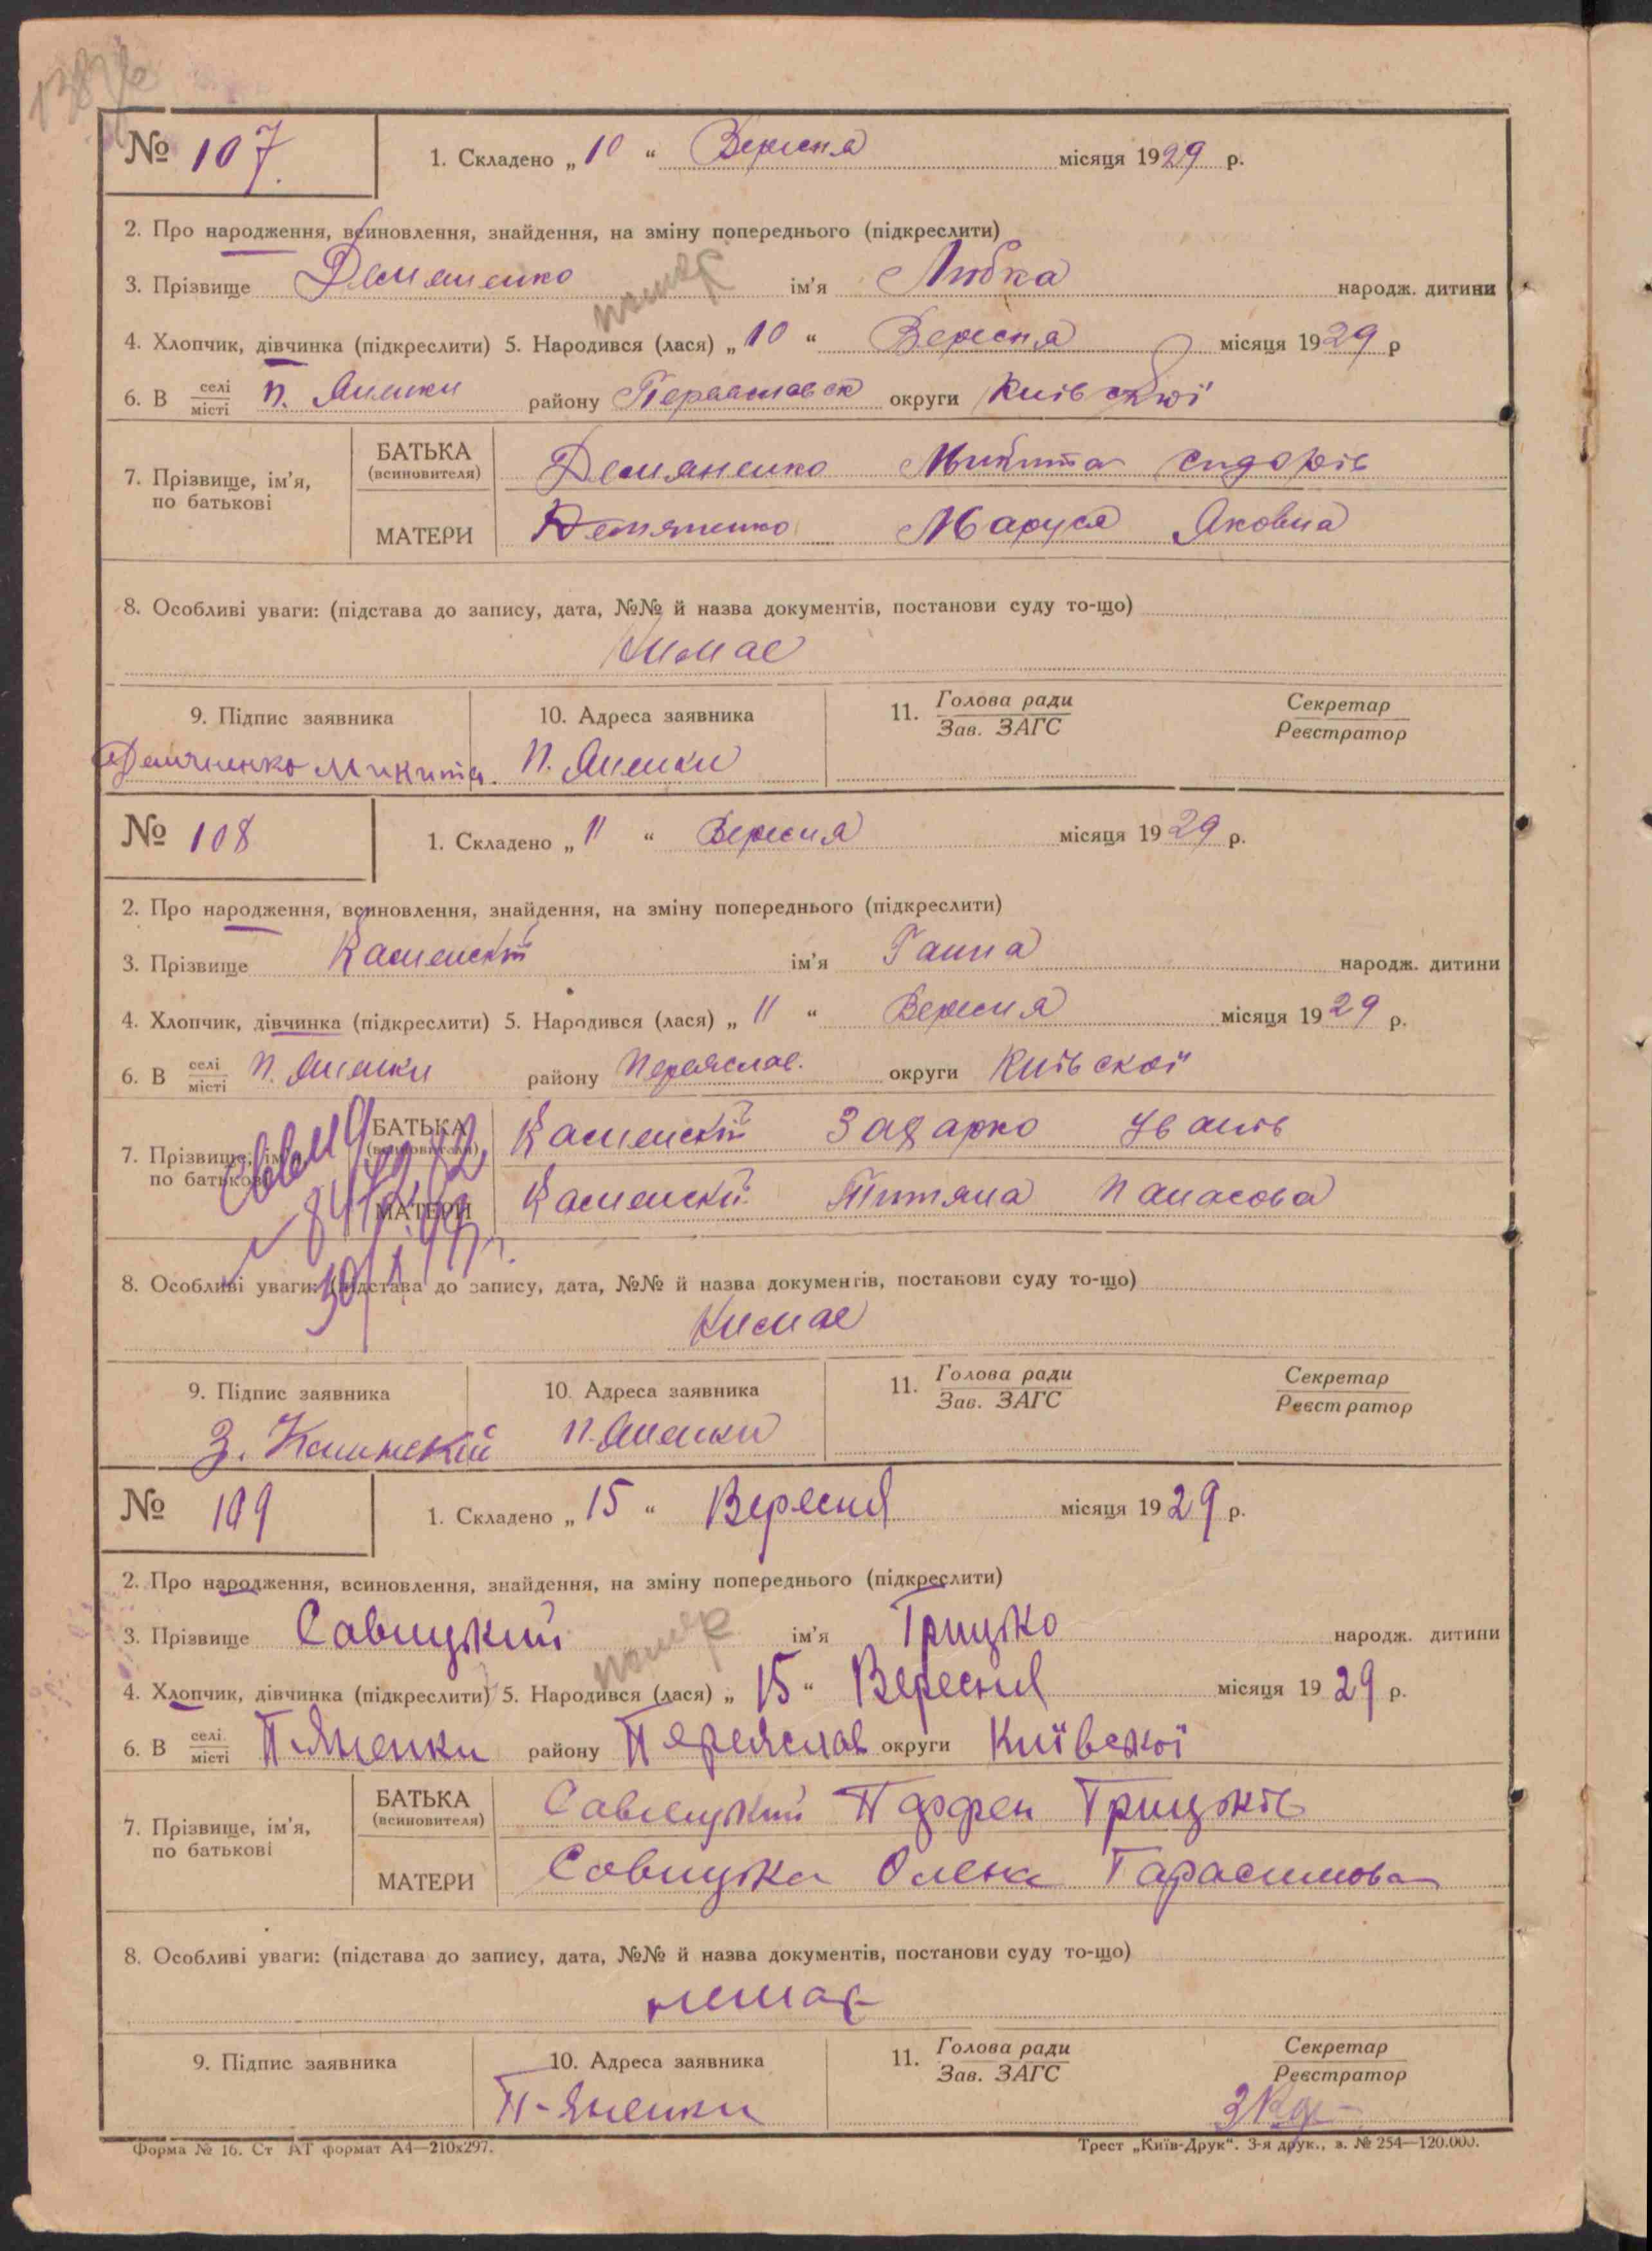 № 107.
1. Складено „10“ Вересня місяця 1929 р.
2. Про народження, всиновлення, знайдення, на зміну попереднього (підкреслити)
3. Прізвище Демяненко ім'я Любка народж. дитини
4. Хлопчик, дівчинка (підкреслити) 5. Народився (лася) „10“ Вересня місяця 1929 р
6. В селі/місті П. Яненки району Переяславск округи Київської
7. Прізвище, ім'я, по батькові
БАТЬКА (всиновителя) Демяненко Микита Сидорів
МАТЕРИ Демяненко Маруся Яковна
8. Особливі уваги: (підстава до запису, дата, №№ й назва документів, постанови суду то-що)
Нимає
9. Підпис заявника 10. Адреса заявника 11. Голова ради/Зав. ЗАГС Секретар/Реєстратор
Демяненко Микита. П. Яненки
№ 108
1. Складено „11“ Вересня місяця 1929 р.
2. Про народження, всиновлення, знайдення, на зміну попереднього (підкреслити)
3. Прізвище ім'я Ганна народж. дитини
4. Хлопчик, дівчинка (підкреслити) 5. Народився (лася) „11“ Вересня місяця 1929 р.
6. В селі/місті П. Яненки району Переяслав. округи Київскої
7. Прізвище, ім'я, по батькові
БАТЬКА (всиновителя) Захарко Іванів
МАТЕРИ Титяна Панасова
8. Особливі уваги: (підстава до запису, дата, №№ й назва документів, постанови суду то-що)
Нимає
9. Підпис заявника 10. Адреса заявника 11. Голова ради/Зав. ЗАГС Секретар/Реєстратор
З. П. Яненки
№ 109
1. Складено „15“ Вересня місяця 1929 р.
2. Про народження, всиновлення, знайдення, на зміну попереднього (підкреслити)
помер
3. Прізвище Савицький ім'я Грицько народж. дитини
4. Хлопчик, дівчинка (підкреслити) 5. Народився (лася) „15“ Вересня місяця 1929 р.
6. В селі/місті П-Яненки району Переяслав округи Київської
7. Прізвище, ім'я, по батькові
БАТЬКА (всиновителя) Савицький Парфен Грицьків
МАТЕРИ Савицька Олена Тарасимова
8. Особливі уваги: (підстава до запису, дата, №№ й назва документів, постанови суду то-що)
немає
9. Підпис заявника 10. Адреса заявника 11. Голова ради/Зав. ЗАГС Секретар/Реєстратор
П-Яненки
Форма № 16. Ст АТ формат А4—210х297.
Трест „Київ-Друк“. 3-я друк., з. № 254—120.000.